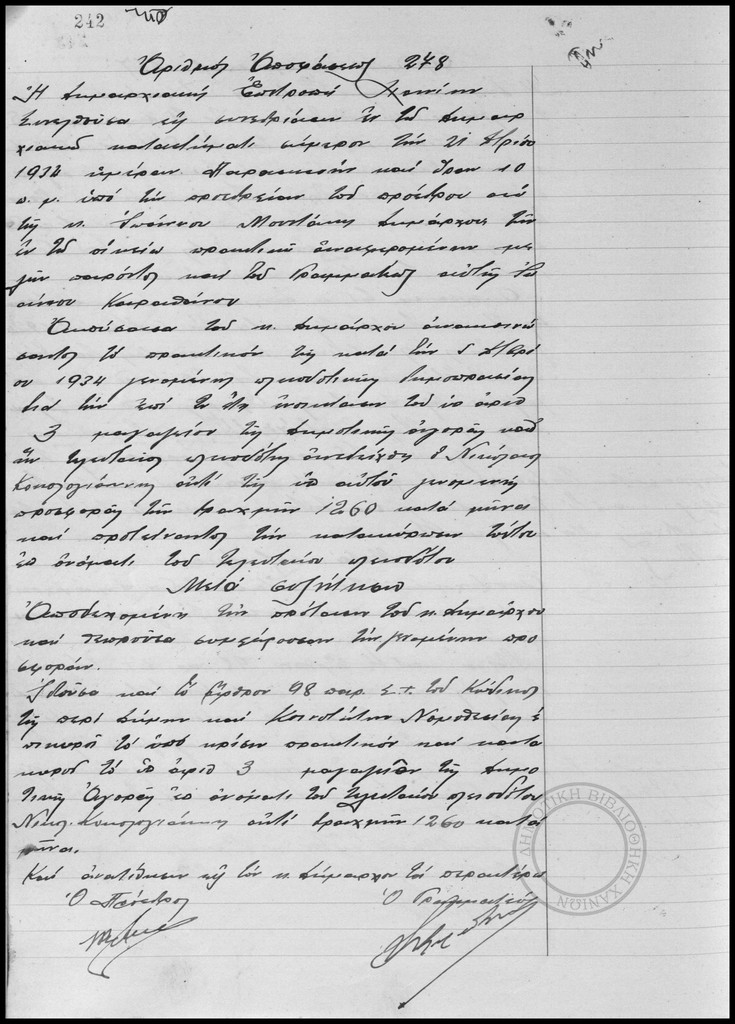 242
Ἀριθμός Ἀποφάσεως 248
Ἡ Δημαρχιακή Ἐπιτροπή Χανίων
Συνελθοῦσα εἰς συνεδρίασιν ἐν τῷ Δημαρ
χιακῷ καταστήματι σήμερον τήν 21
1934 ἡμέραν Παρασκευήν καί ὥραν 10
π. μ. ὑπό τήν προεδρείαν τοῦ προέδρου αὐ
τῆς κ. Ἰωάννου Μουντάκη Δημάρχου τῶν
ἐν τῷ οἰκείῳ πρακτικῷ ἀναφερομένων με
λῶν παρόντος καί τοῦ Γραμματέως αὐτῆς Ἰω
άννου
Ἀκούσασα τοῦ κ. Δημάρχου ἀνακοινώ
σαντος τό πρακτικόν τῆς κατά τήν
ου 1934 γενομένης πλειοδοτικῆς δημοπρασίας
διά τήν ἐπί ἐνοικίασιν τοῦ ὑπ ἀριθ
3 μαγαζείου τῆς Δημοτικῆς ἀγορᾶς καθ
ἥν τελευταῖος πλειοδότης ἀνεδείχθη ὁ Νικόλαος
ἀντί τῆς ὑπ αὐτοῦ γενομένης
προσφορᾶς τῶν δραχμῶν 1260 κατά μῆνα
καί προτείναντος τήν κατακύρωσιν τούτου
ἐπ ὀνόματι τοῦ τελευταίου πλειοδότου
Μετά συζήτησιν
Ἀποδεχομένη τήν πρότασιν τοῦ κ. Δημάρχου
καί θεωροῦσα συμφέρουσαν τήν γενομένην προ
σφοράν.
Ἰδοῦσα καί τό ἄρθρον 98 παρ. Σ.τ. τοῦ Κώδικος
τῆς περί Δήμων καί Κοινοτήτων Νομοθεσίας ἐ
πικυροῖ τό ὑπό κρίσιν πρακτικόν καί κατα
κυροῖ τό ὑπ ἀριθ 3 μαγαζεῖον τῆς Δημο
τικῆς Ἀγορᾶς ἐπ ὀνόματι τοῦ τελευταίου πλειοδότου
Νικολ. ἀντί δραχμῶν 1260 κατά
μῆνα.
Καί ἀνατίθησιν εἰς τόν κ. Δήμαρχον τά περαιτέρω
Ὁ Πρόεδρος Ὁ Γραμματεύς
ΔΗΜΟΤΙΚΗ ΒΙΒΛΙΟΘΗΚΗ ΧΑΝΙΩΝ